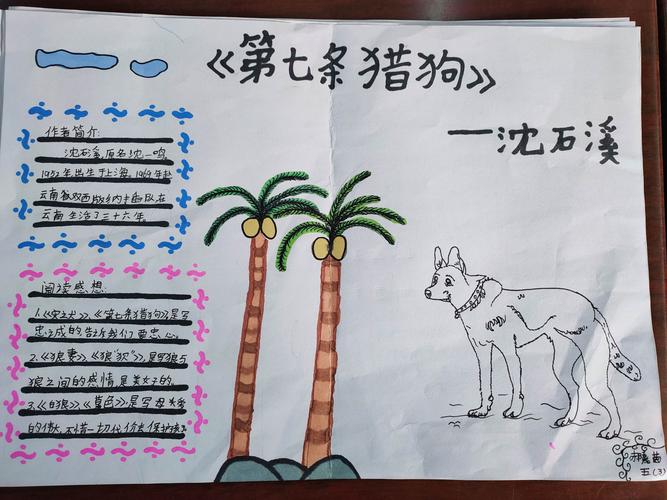 《第七条猎狗》
—沈石溪
作者简介:
沈石溪,原名:沈一鸣,
1952年出生于上海。1969年赴
云南省双西版纳插队在
云南生活了三十六年。
阅读感想:
《第七条猎狗》是写
忠诚的告诉我们要忠心。
是写狼与
狼之间的感情是美好的。
3.《白狼》、《暮色》是写母
的 不惜一切代价去保护孩子
五(3)